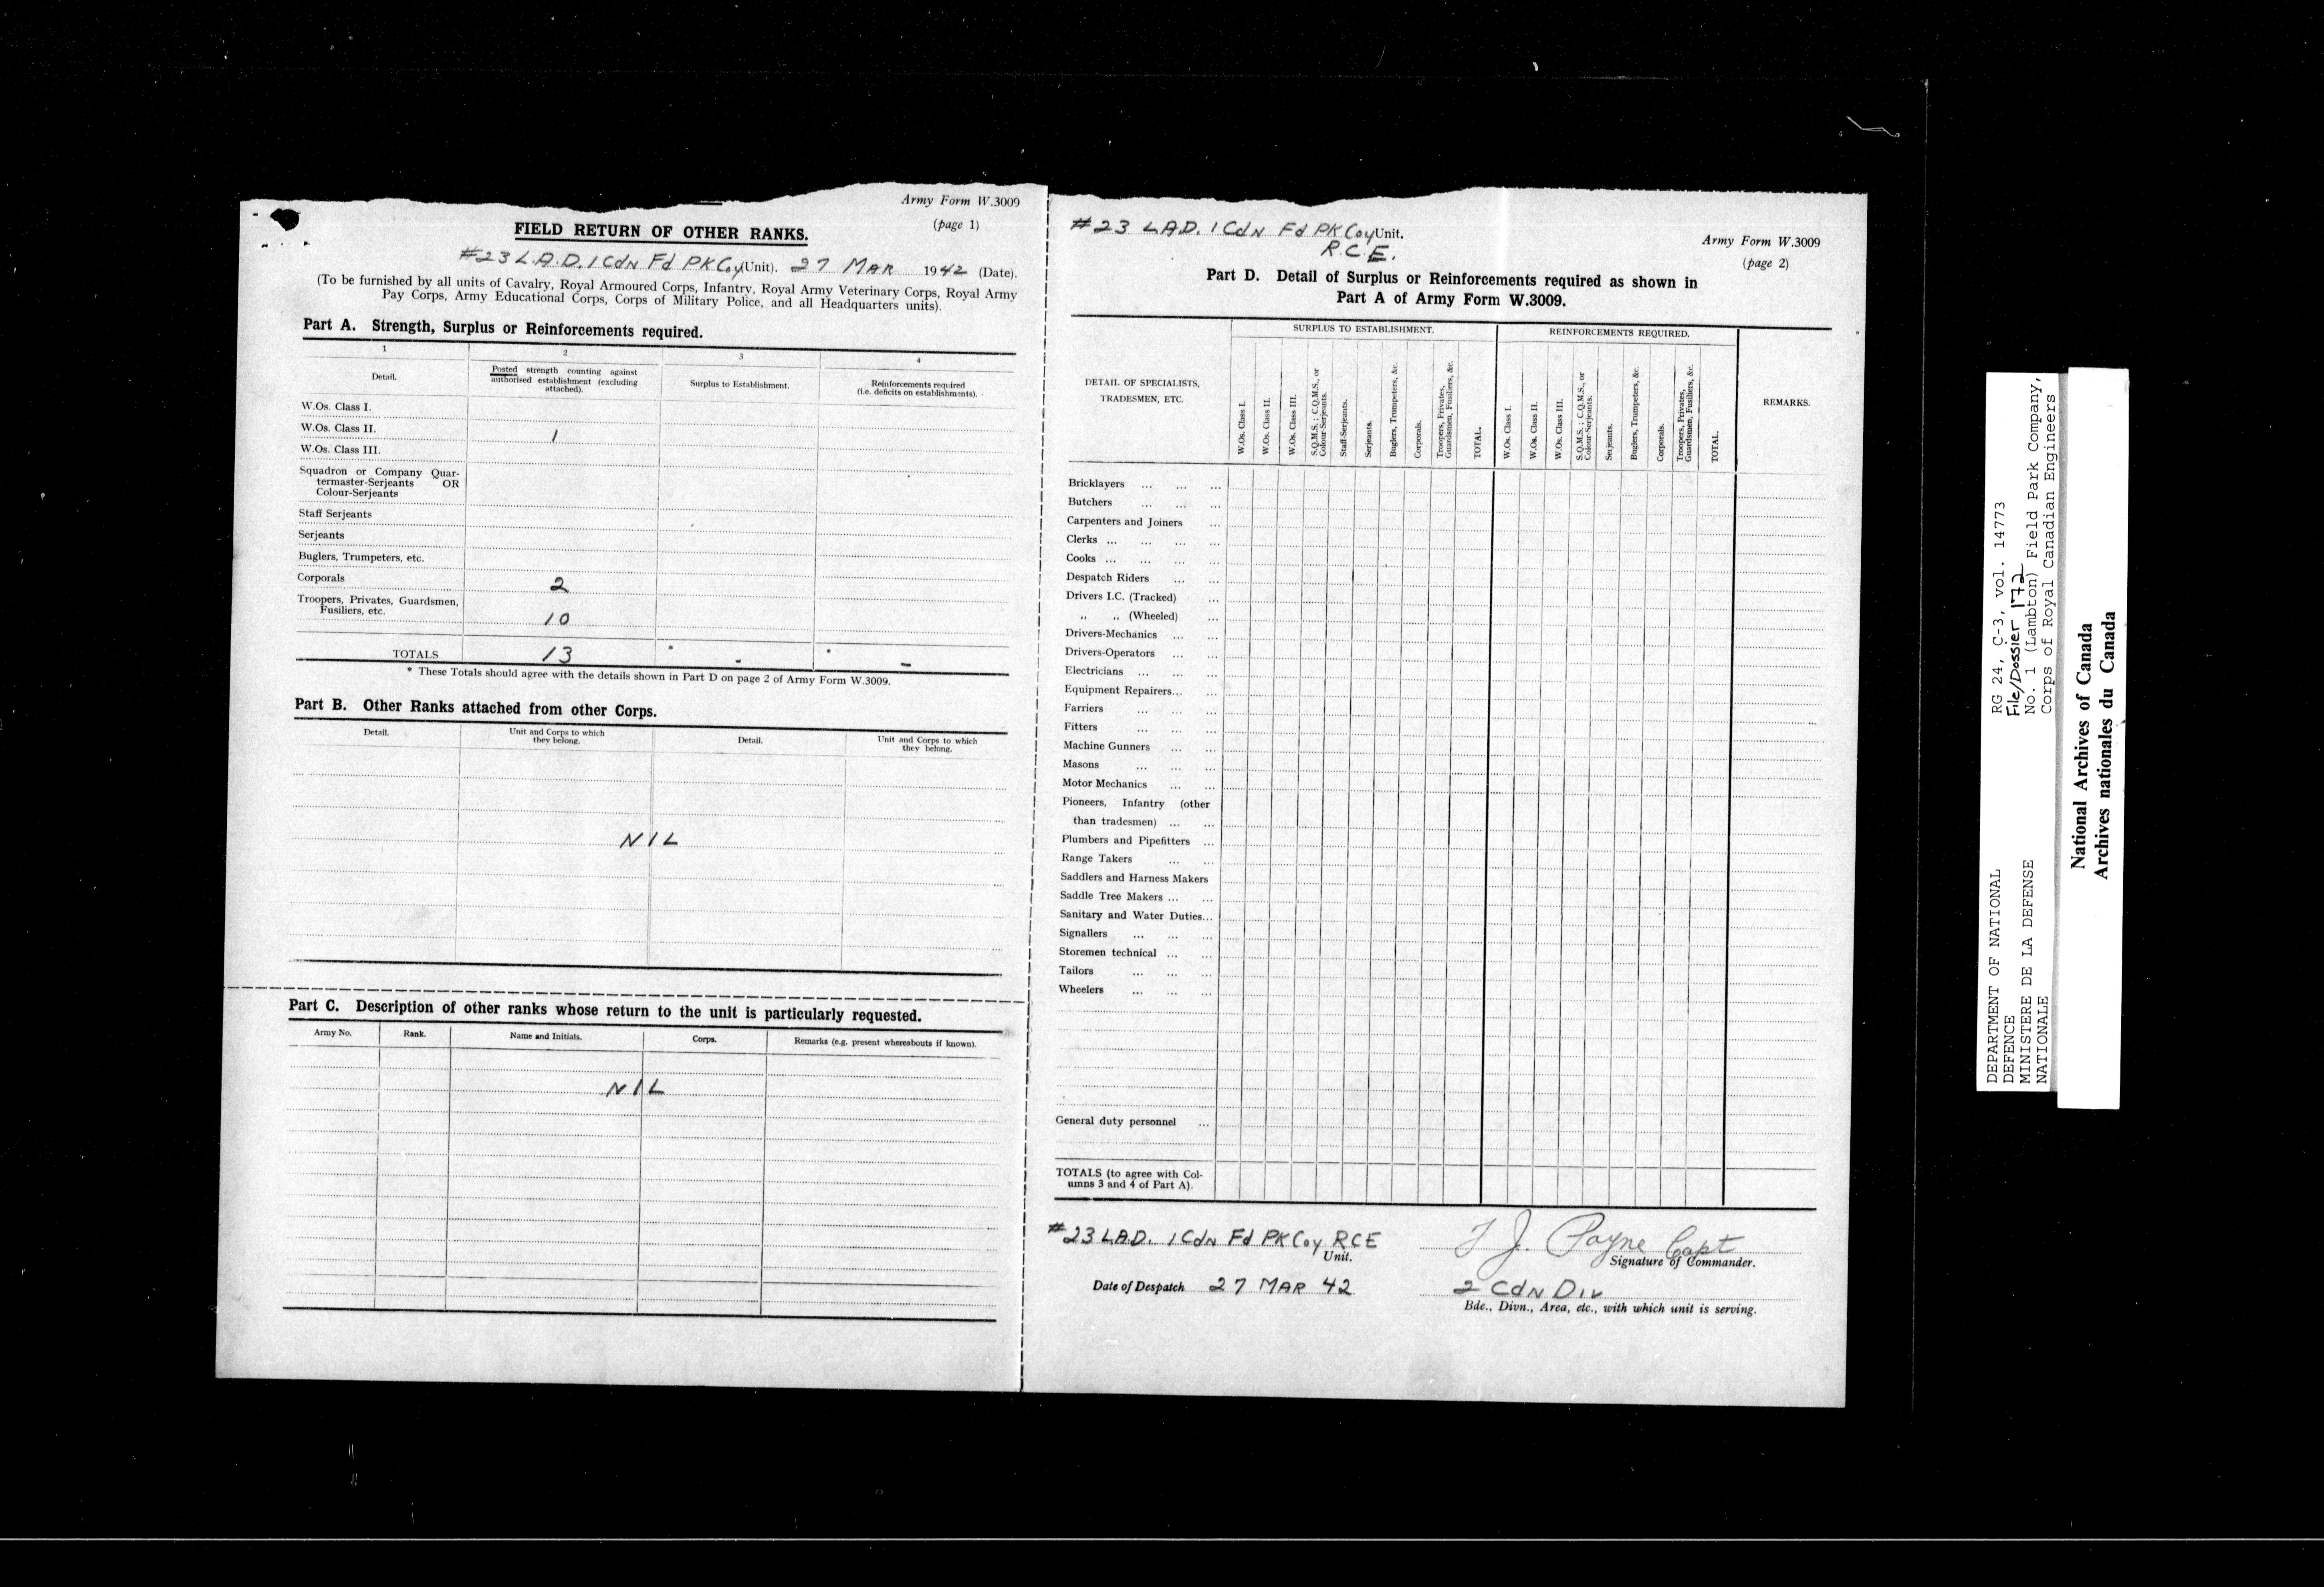 Army Form W.3009
(page 1)
FIELD RETURN OF OTHER RANKS.
#23 L.A.D. 1 Cdn Fd PK Coy (Unit). 27 MAR 1942 (Date).
(To be furnished by all units of Cavalry, Royal Armoured Corps, Infantry, Royal Army Veterinary Corps, Royal Army
Pay Corps, Army Educational Corps, Corps of Military Police, and all Headquarters units).
Part A. Strength, Surplus or Reinforcements required.
1 2 3 4
Detail. Posted strength counting against authorised establishment (excluding attached). Surplus to Establishment. Reinforcements required (i.e. deficits on establishments).
W.Os. Class I.
W.Os. Class II. 1
W.Os. Class III.
Squadron or Company Quar-
termaster-Serjeants OR
Colour-Serjeants
Staff Serjeants
Serjeants
Buglers, Trumpeters, etc.
Corporals 2
Troopers, Privates, Guardsmen,
Fusiliers, etc. 10
TOTALS 13 * - * -
* These Totals should agree with the details shown in Part D on page 2 of Army Form W.3009.
Part B. Other Ranks attached from other Corps.
Detail. Unit and Corps to which they belong. Detail. Unit and Corps to which they belong.
NIL
Part C. Description of other ranks whose return to the unit is particularly requested.
Army No. Rank. Name and Initials. Corps. Remarks (e.g. present whereabouts if known).
NIL
#23 L.A.D. 1 Cdn Fd PK Coy Unit.
R.C.E.
Army Form W.3009
(page 2)
Part D. Detail of Surplus or Reinforcements required as shown in
Part A of Army Form W.3009.
SURPLUS TO ESTABLISHMENT. REINFORCEMENTS REQUIRED.
DETAIL OF SPECIALISTS,
TRADESMEN, ETC.
W.Os. Class I.
W.Os. Class II.
W.Os. Class III.
S.Q.M.S.; C.Q.M.S., or
Colour-Serjeants.
Staff-Serjeants.
Serjeants.
Buglers, Trumpeters, &c.
Corporals.
Troopers, Privates,
Guardsmen, Fusiliers, &c.
TOTAL.
W.Os. Class I.
W.Os. Class II.
W.Os. Class III.
S.Q.M.S.; C.Q.M.S., or
Colour-Serjeants.
Serjeants.
Buglers, Trumpeters, &c.
Corporals.
Troopers, Privates,
Guardsmen, Fusiliers, &c.
TOTAL.
REMARKS.
Bricklayers ... ... ...
Butchers ... ... ...
Carpenters and Joiners ...
Clerks ... ... ... ...
Cooks ... ... ... ...
Despatch Riders ... ...
Drivers I.C. (Tracked) ...
,, ,, (Wheeled) ...
Drivers-Mechanics ... ...
Drivers-Operators ... ...
Electricians ... ... ...
Equipment Repairers... ...
Farriers ... ... ...
Fitters ... ... ...
Machine Gunners ... ...
Masons ... ... ...
Motor Mechanics ... ...
Pioneers, Infantry (other
than tradesmen) ... ...
Plumbers and Pipefitters ...
Range Takers ... ...
Saddlers and Harness Makers
Saddle Tree Makers ... ...
Sanitary and Water Duties...
Signallers ... ... ...
Storemen technical ... ...
Tailors ... ... ...
Wheelers ... ... ...
General duty personnel ...
TOTALS (to agree with Col-
umns 3 and 4 of Part A).
#23 L.A.D. 1 Cdn Fd PK Coy RCE
Unit.
T J. Payne Capt
Signature of Commander.
Date of Despatch 27 MAR 42
2 Cdn Div
Bde., Divn., Area, etc., with which unit is serving.
DEPARTMENT OF NATIONAL
DEFENCE
MINISTERE DE LA DEFENSE
NATIONALE
RG 24, C-3, vol. 14773
File/Dossier 172
No. 1 (Lambton) Field Park Company,
Corps of Royal Canadian Engineers
National Archives of Canada
Archives nationales du Canada